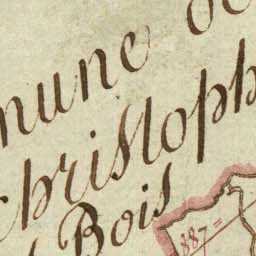 mune de
christoph
Bois
387